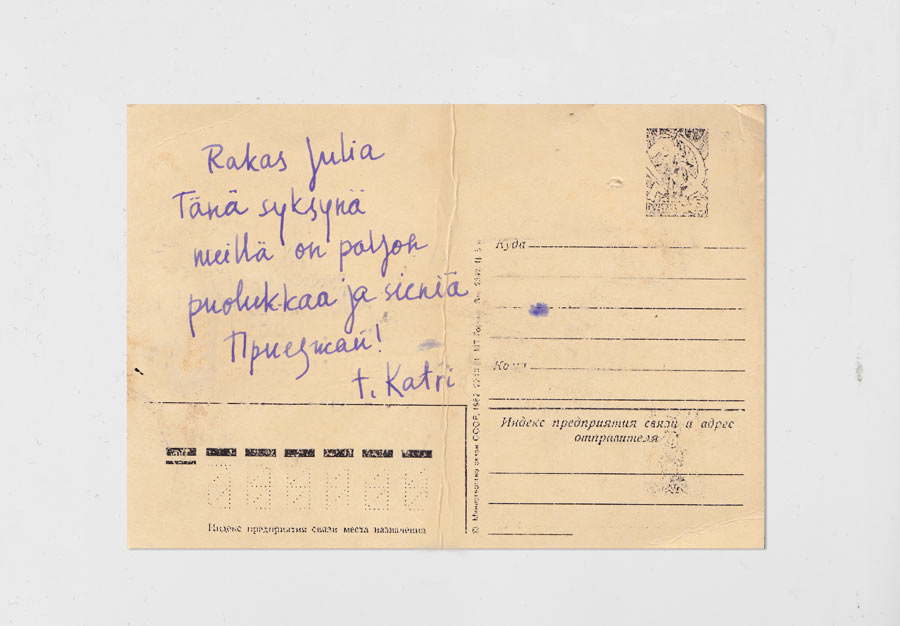 Rakas Julia
Tänä syksynä
meillä on paljon
puolukkaa ja sieniä
Приезжай!
t. Katri
Куда
Кому
Индекс предприятия связи и адрес
отправителя
Индекс предприятия связи места назначения
© Министерство связи СССР, 1982